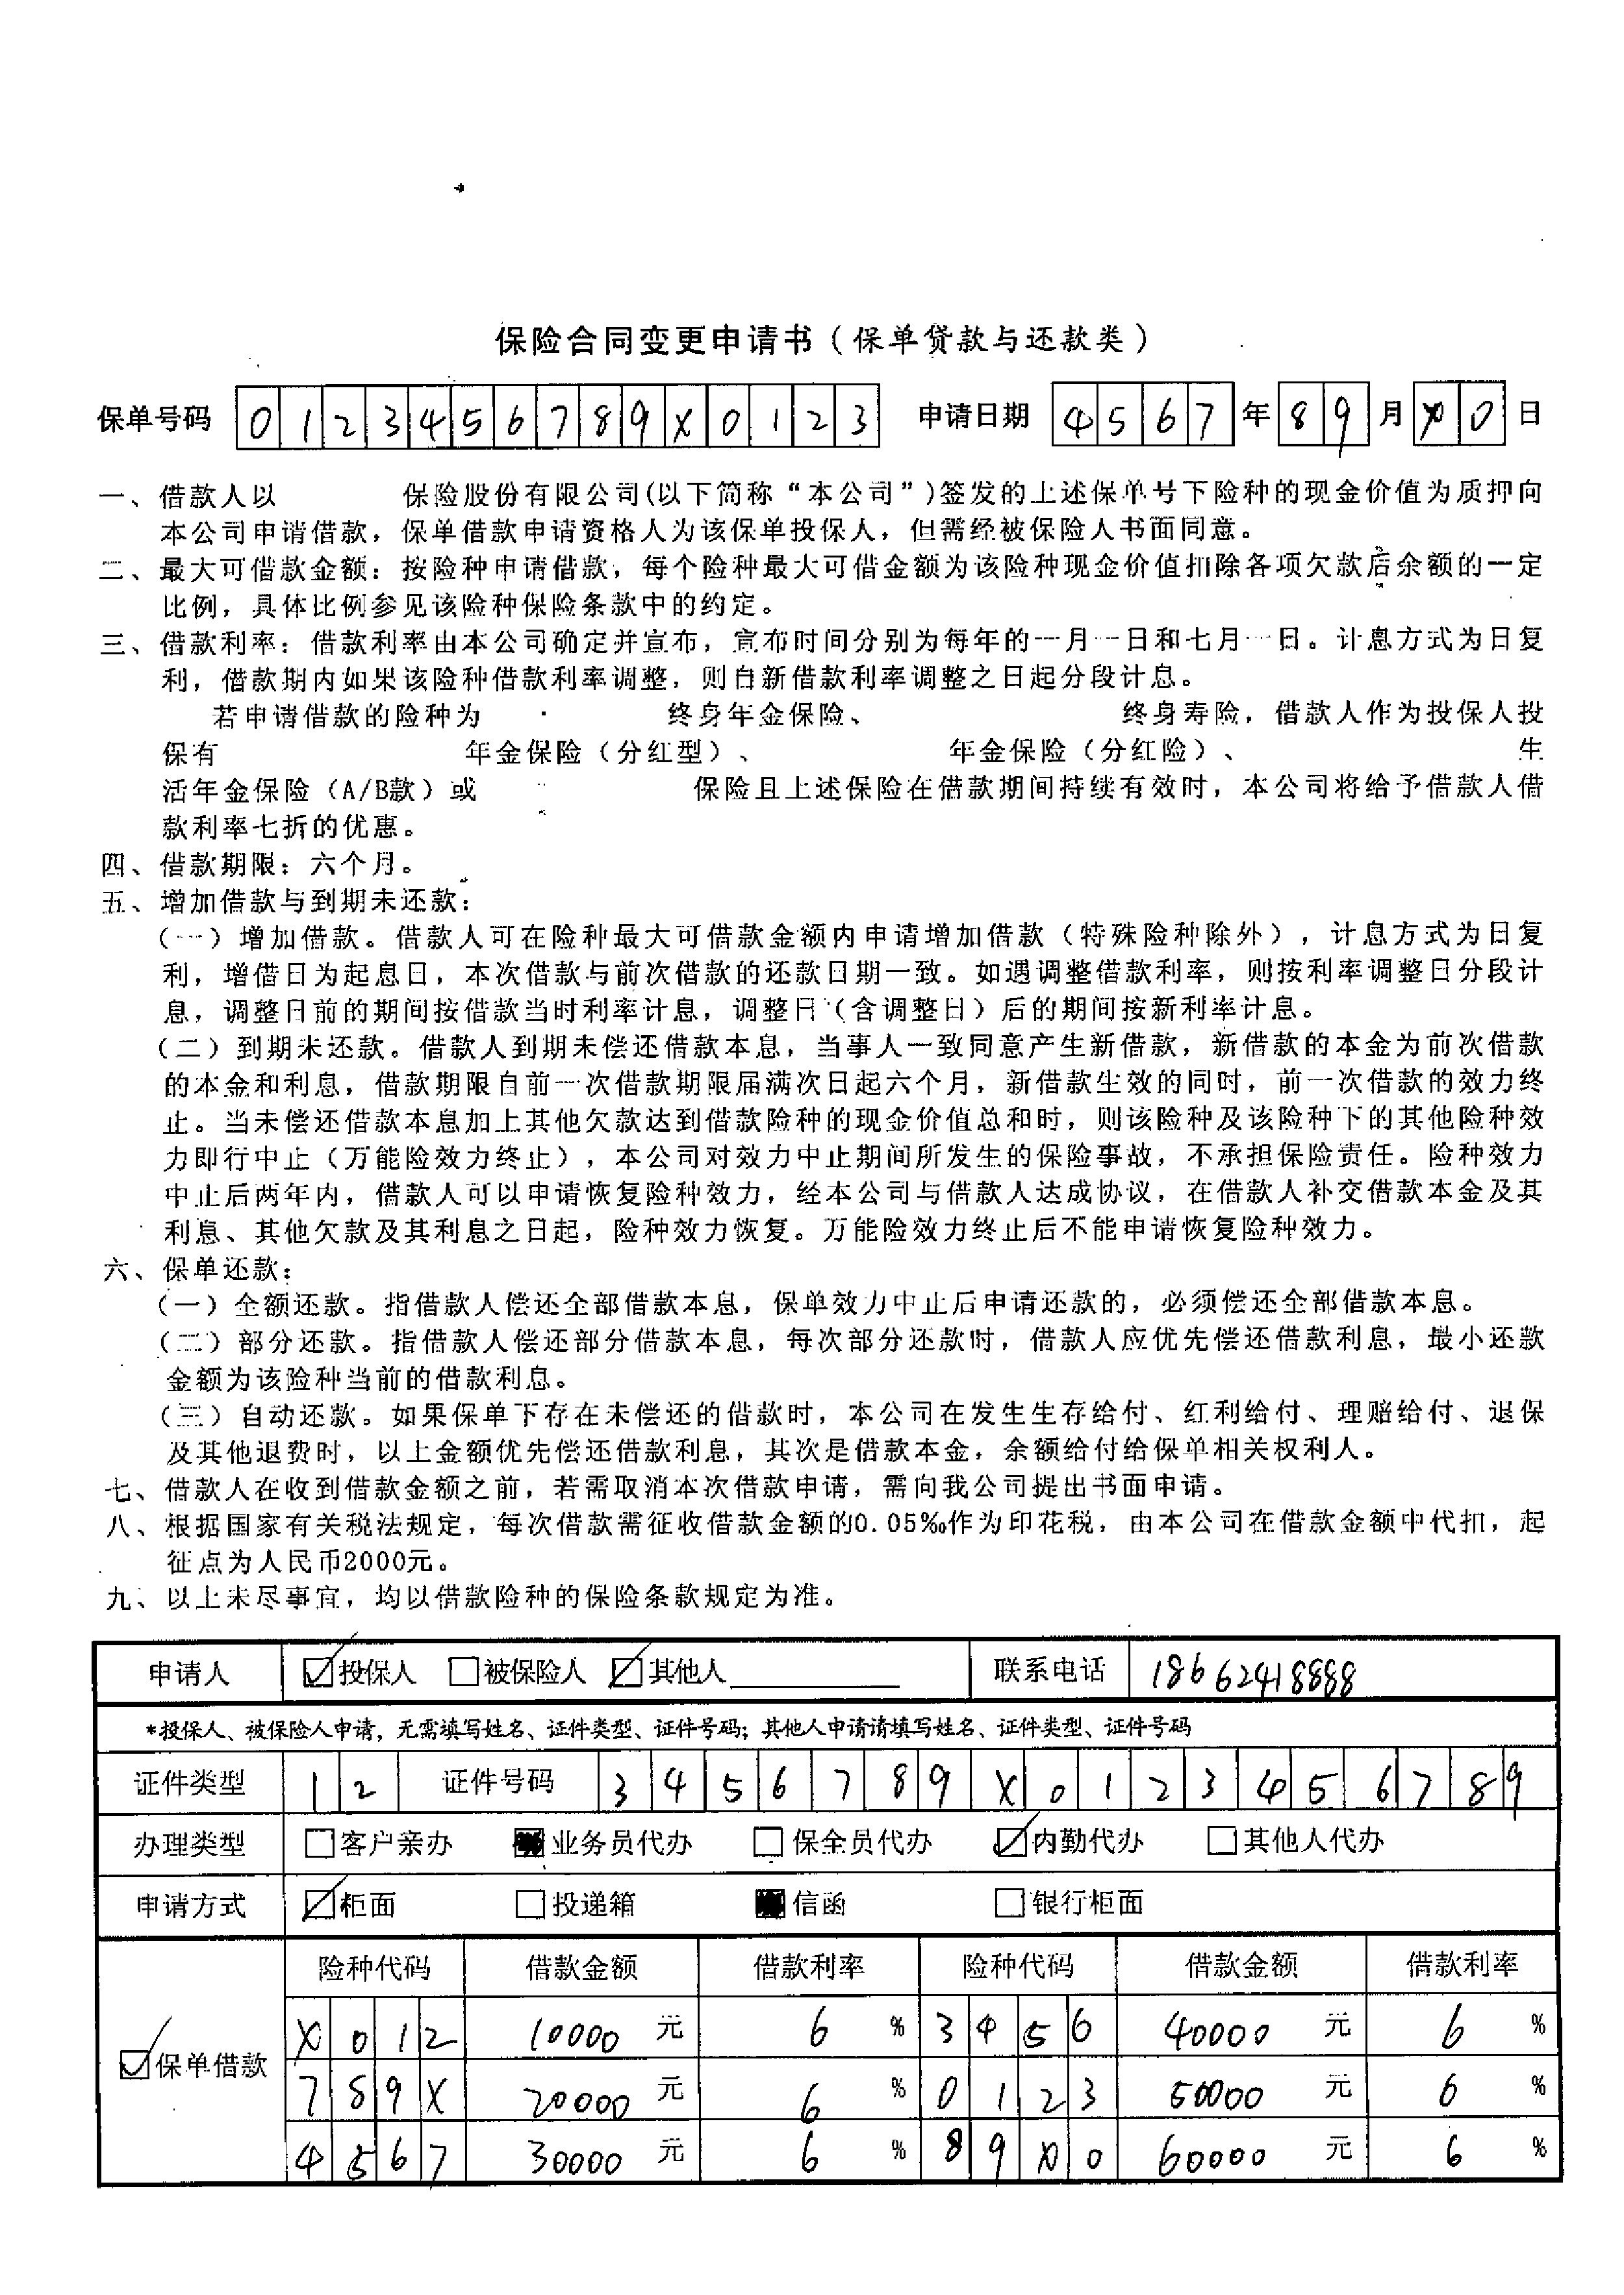 保险合同变更申请书（保单贷款与还款类）
保单号码 0 1 2 3 4 5 6 7 8 9 X 0 1 2 3 申请日期 4 5 6 7 年 8 9 月 X 0 日
一、借款人以 保险股份有限公司(以下简称“本公司”)签发的上述保单号下险种的现金价值为质押向
本公司申请借款，保单借款申请资格人为该保单投保人，但需经被保险人书面同意。
二、最大可借款金额：按险种申请借款，每个险种最大可借金额为该险种现金价值扣除各项欠款后余额的一定
比例，具体比例参见该险种保险条款中的约定。
三、借款利率：借款利率由本公司确定并宣布，宣布时间分别为每年的一月一日和七月一日。计息方式为日复
利，借款期内如果该险种借款利率调整，则自新借款利率调整之日起分段计息。
若申请借款的险种为 终身年金保险、 终身寿险，借款人作为投保人投
保有 年金保险（分红型）、 年金保险（分红险）、 生
活年金保险（A/B款）或 保险且上述保险在借款期间持续有效时，本公司将给予借款人借
款利率七折的优惠。
四、借款期限：六个月。
五、增加借款与到期未还款：
（一）增加借款。借款人可在险种最大可借款金额内申请增加借款（特殊险种除外），计息方式为日复
利，增借日为起息日，本次借款与前次借款的还款日期一致。如遇调整借款利率，则按利率调整日分段计
息，调整日前的期间按借款当时利率计息，调整日（含调整日）后的期间按新利率计息。
（二）到期未还款。借款人到期未偿还借款本息，当事人一致同意产生新借款，新借款的本金为前次借款
的本金和利息，借款期限自前一次借款期限届满次日起六个月，新借款生效的同时，前一次借款的效力终
止。当未偿还借款本息加上其他欠款达到借款险种的现金价值总和时，则该险种及该险种下的其他险种效
力即行中止（万能险效力终止），本公司对效力中止期间所发生的保险事故，不承担保险责任。险种效力
中止后两年内，借款人可以申请恢复险种效力，经本公司与借款人达成协议，在借款人补交借款本金及其
利息、其他欠款及其利息之日起，险种效力恢复。万能险效力终止后不能申请恢复险种效力。
六、保单还款：
（一）全额还款。指借款人偿还全部借款本息，保单效力中止后申请还款的，必须偿还全部借款本息。
（二）部分还款。指借款人偿还部分借款本息，每次部分还款时，借款人应优先偿还借款利息，最小还款
金额为该险种当前的借款利息。
（三）自动还款。如果保单下存在未偿还的借款时，本公司在发生生存给付、红利给付、理赔给付、退保
及其他退费时，以上金额优先偿还借款利息，其次是借款本金，余额给付给保单相关权利人。
七、借款人在收到借款金额之前，若需取消本次借款申请，需向我公司提出书面申请。
八、根据国家有关税法规定，每次借款需征收借款金额的0.05‰作为印花税，由本公司在借款金额中代扣，起
征点为人民币2000元。
九、以上未尽事宜，均以借款险种的保险条款规定为准。
申请人 ☑投保人 □被保险人 ☑其他人 联系电话 18662418888
*投保人、被保险人申请，无需填写姓名、证件类型、证件号码；其他人申请请填写姓名、证件类型、证件号码
证件类型 1 2 证件号码 3 4 5 6 7 8 9 X 0 1 2 3 4 5 6 7 8 9
办理类型 □客户亲办 ■业务员代办 □保全员代办 ☑内勤代办 □其他人代办
申请方式 ☑柜面 □投递箱 ■信函 □银行柜面
险种代码 借款金额 借款利率 险种代码 借款金额 借款利率
X 0 1 2 10000 元 6 % 3 4 5 6 40000 元 6 %
☑保单借款
7 8 9 X 20000 元 6 % 0 1 2 3 50000 元 6 %
4 5 6 7 30000 元 6 % 8 9 X 0 60000 元 6 %